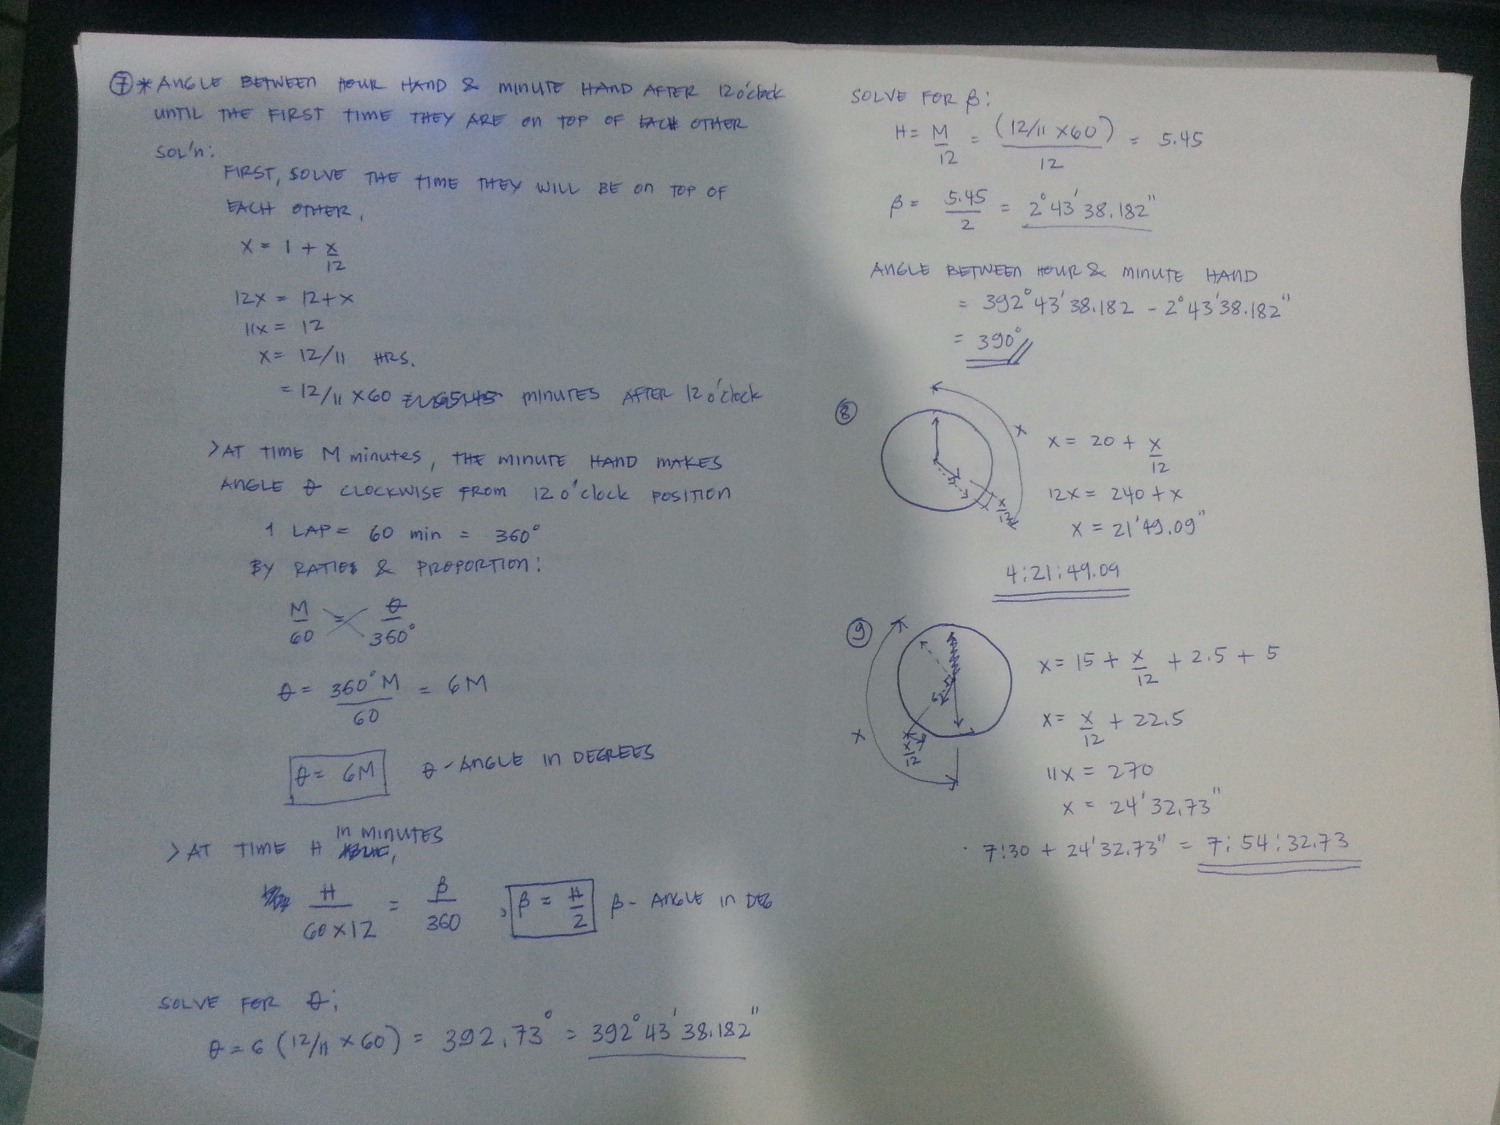 ⑦ * ANGLE BETWEEN HOUR HAND & MINUTE HAND AFTER 12 o'clock
UNTIL THE FIRST TIME THEY ARE ON TOP OF EACH OTHER
SOL'N:
FIRST, SOLVE THE TIME THEY WILL BE ON TOP OF
EACH OTHER,
X = 1 + X/12
12X = 12+X
11X = 12
X = 12/11 HRS.
= 12/11 X 60 MINUTES AFTER 12 o'clock
> AT TIME M minutes, THE MINUTE HAND MAKES
ANGLE θ CLOCKWISE FROM 12 o'clock POSITION
1 LAP = 60 min = 360°
BY RATIO & PROPORTION:
M/60 = θ/360°
θ = 360°M/60 = 6M
θ = 6M θ - ANGLE IN DEGREES
> AT TIME H IN MINUTES,
H/(60 X 12) = β/360 , β = H/2 β - ANGLE IN DEG
SOLVE FOR θ:
θ = 6 (12/11 X 60) = 392.73° = 392°43'38.182"
SOLVE FOR β:
H = M/12 = (12/11 X 60)/12 = 5.45
β = 5.45/2 = 2°43'38.182"
ANGLE BETWEEN HOUR & MINUTE HAND
= 392°43'38.182 - 2°43'38.182"
= 390°
⑧
X
X/12
X = 20 + X/12
12X = 240 + X
X = 21'49.09"
4:21:49.09
⑨
X
X/12
X = 15 + X/12 + 2.5 + 5
X = X/12 + 22.5
11X = 270
X = 24'32.73"
7:30 + 24'32.73" = 7:54:32.73